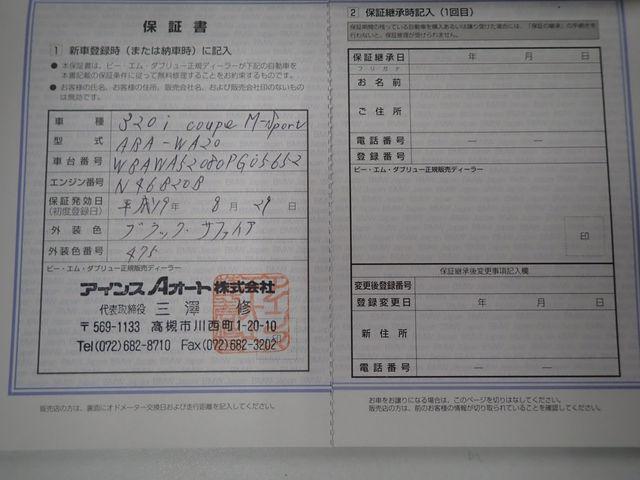 保証書
1 新車登録時(または納車時)に記入
● 本保証書は、ビー・エム・ダブリュー正規ディーラーが下記の自動車を
本書記載の保証条件に従って無料修理することをお約束するものです。
● お客様の氏名、お客様の住所、販売会社名、および販売会社印のないもの
は無効です。
車種 320i coupe M-Sport
型式 ABA-WA20
車台番号 WBAWA52080PG05652
エンジン番号 N46B20B
保証発効日 平成19年 8月29日
(初度登録日)
外装色 ブラックサファイア
外装色番号 475
ビー・エム・ダブリュー正規販売ディーラー
アインスAオート株式会社
代表取締役 三澤 修
〒569-1133 高槻市川西町1-20-10
Tel(072)682-8710 Fax(072)682-3202
印
販売店の方は、裏面にオドメーター交換日および走行距離を記入してください。
2 保証継承時記入(1回目)
保証期間の残っている自動車を購入あるいは譲り受けた場合には、「保証の継承」の手続きを
行わないと、保証修理が受けられません。
保証継承日 年 月 日
フリガナ
お名前
ご住所
電話番号 ― ―
登録番号
ビー・エム・ダブリュー正規販売ディーラー
印
保証継承後変更事項記入欄
変更後登録番号
登録変更日 年 月 日
新住所
電話番号 ― ―
お車をお譲りになる場合は、このページを切りはなしてください。
販売店の方は、前のお客様の情報が切り取られていることを確認してください。